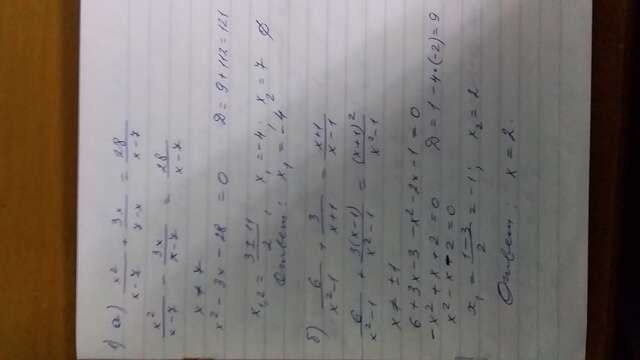 1) а) x²/(x-7) + 3x/(7-x) = 28/(x-7)
x²/(x-7) - 3x/(x-7) = 28/(x-7)
x ≠ 7
x² - 3x - 28 = 0 D = 9 + 112 = 121
x₁,₂ = (3±11)/2; x₁ = -4; x₂ = 7 ∅
Ответ: x₁ = -4
б) 6/(x²-1) + 3/(x+1) = (x+1)/(x-1)
6/(x²-1) + 3(x-1)/(x²-1) = (x+1)²/(x²-1)
x ≠ ±1
6 + 3x - 3 - x² - 2x - 1 = 0
-x² + x + 2 = 0 D = 1 - 4·(-2) = 9
x² - x - 2 = 0
x₁ = (1-3)/2 = -1; x₂ = 2
Ответ: x = 2.